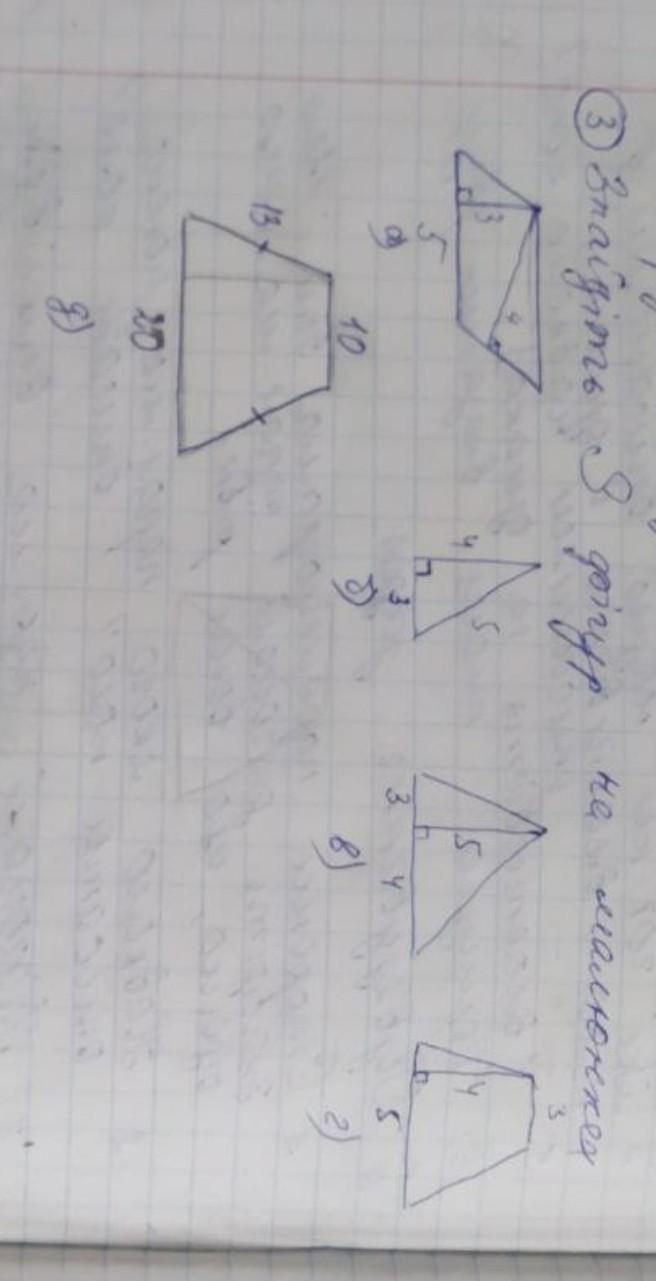 ③ Знайдіть S фігур на малюнках
3 4
5
а)
4 5
3
б)
5
3 4
в)
3
4
5
г)
10
13
20
д)